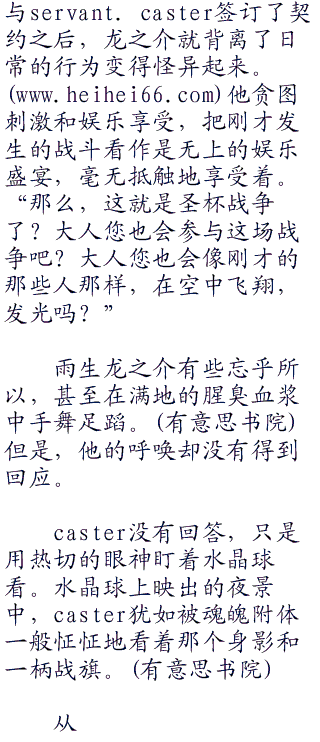 与servant. caster签订了契
约之后，龙之介就背离了日
常的行为变得怪异起来。
(www.heihei66.com)他贪图
刺激和娱乐享受，把刚才发
生的战斗看作是无上的娱乐
盛宴，毫无抵触地享受着。
“那么，这就是圣杯战争
了？大人您也会参与这场战
争吧？大人您也会像刚才的
那些人那样，在空中飞翔，
发光吗？”
雨生龙之介有些忘乎所
以，甚至在满地的腥臭血浆
中手舞足蹈。(有意思书院)
但是，他的呼唤却没有得到
回应。
caster没有回答，只是
用热切的眼神盯着水晶球
看。水晶球上映出的夜景
中，caster犹如被魂魄附体
一般怔怔地看着那个身影和
一柄战旗。(有意思书院)
从